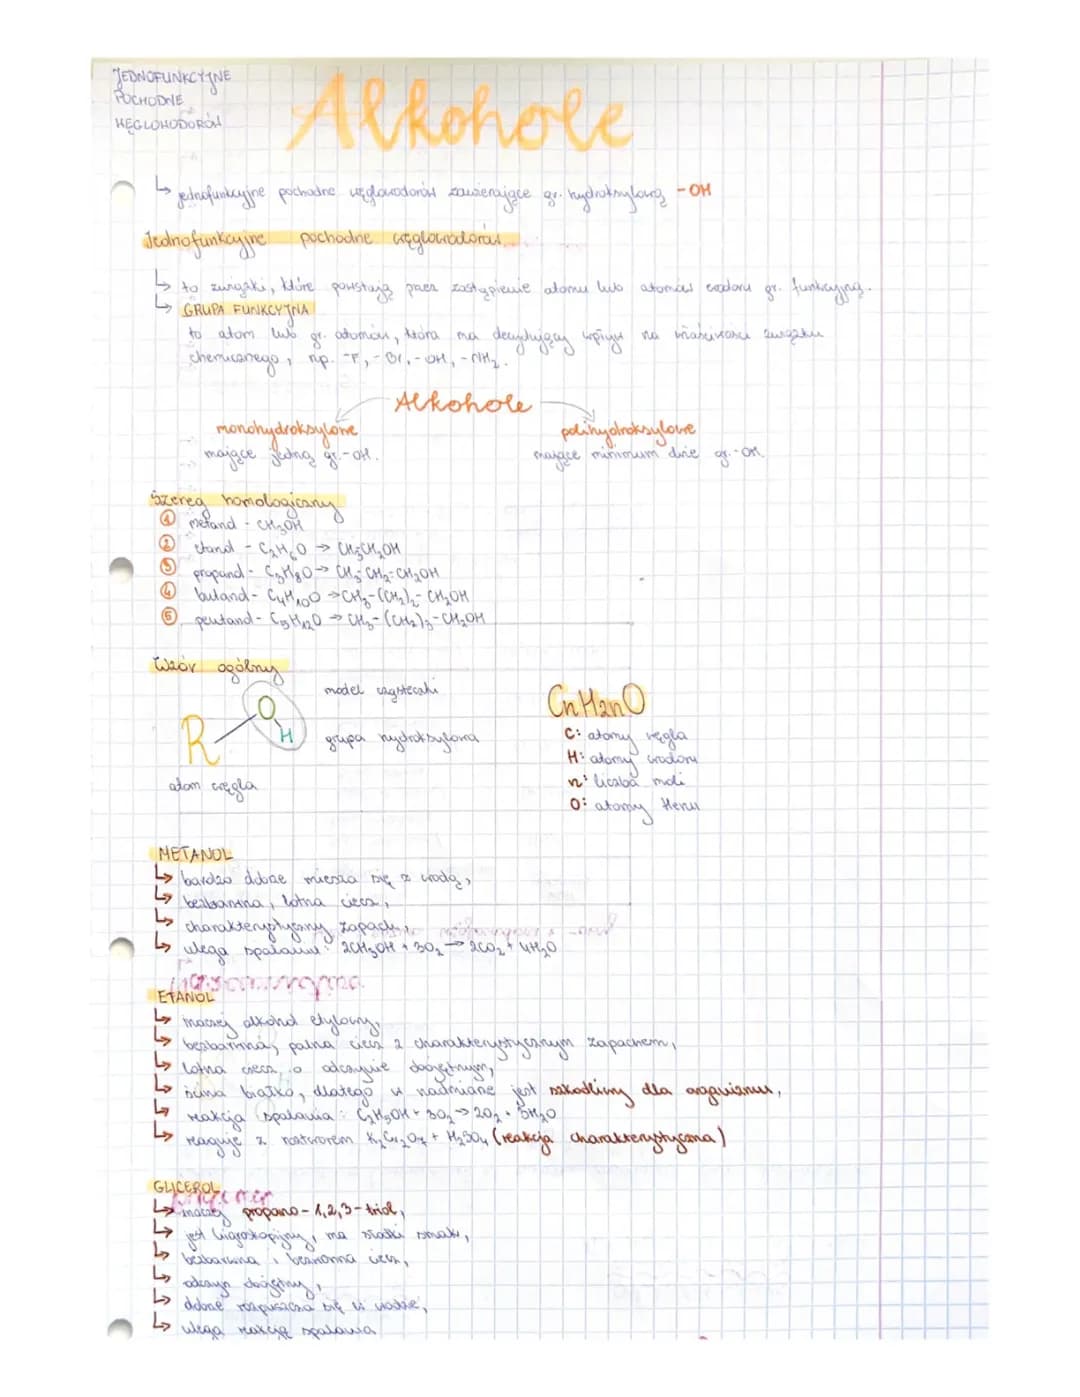 JEDNOFUNKCYJNE
POCHODNE
WĘGLOWODORÓW
Alkohole
↳ jednofunkcyjne pochodne węglowodorów zawierające gr. hydroksylową -OH
Jednofunkcyjne pochodne węglowodorów
↳ to związki, które powstają przez zastąpienie atomu lub atomów wodoru gr. funkcyjną.
↳ GRUPA FUNKCYJNA
to atom lub gr. atomów, która ma decydujący wpływ na właściwości związku
chemicznego, np. -F, -Br, -OH, -NH₂.
Alkohole
monohydroksylowe
mające jedną gr. -OH.
polihydroksylowe
mające minimum dwie gr. -OH.
Szereg homologiczny
① metanol - CH₃OH
② etanol - C₂H₆O → CH₃CH₂OH
③ propanol - C₃H₈O → CH₃-CH₂-CH₂OH
④ butanol - C₄H₁₀O → CH₃-(CH₂)₂-CH₂OH
⑤ pentanol - C₅H₁₂O → CH₃-(CH₂)₃-CH₂OH
Wzór ogólny
R O H
model cząsteczki
grupa hydroksylowa
atom węgla
CnH2nO
C: atomy węgla
H: atomy wodoru
n: liczba moli
O: atomy tlenu
METANOL
↳ bardzo dobrze miesza się z wodą,
↳ bezbarwna, lotna ciecz,
↳ charakterystyczny zapach,
↳ ulega spalaniu: 2CH₃OH + 3O₂ → 2CO₂ + 4H₂O
ETANOL
↳ inaczej alkohol etylowy,
↳ bezbarwna, palna ciecz z charakterystycznym zapachem,
↳ lotna ciecz, o odczynie obojętnym,
↳ ścina białko, dlatego w nadmiarze jest szkodliwy dla organizmu,
↳ reakcja spalania: C₂H₅OH + 3O₂ → 2O₂ + 3H₂O
↳ reaguje z roztworem K₂Cr₂O₇ + H₂SO₄ (reakcja charakterystyczna)
GLICEROL
↳ inaczej propano-1,2,3-triol,
↳ jest higroskopijny, ma słodki smak,
↳ bezbarwna i bezwonna ciecz,
↳ odczyn obojętny,
↳ dobrze rozpuszcza się w wodzie,
↳ ulega reakcji spalania